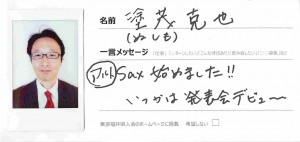 名前 塗茂克也
(ぬしも)
一言メッセージ
アルト Sax 始めました!!
いつかは 発表会デビュー
東京福井県人会のホームページに掲載 希望しない □